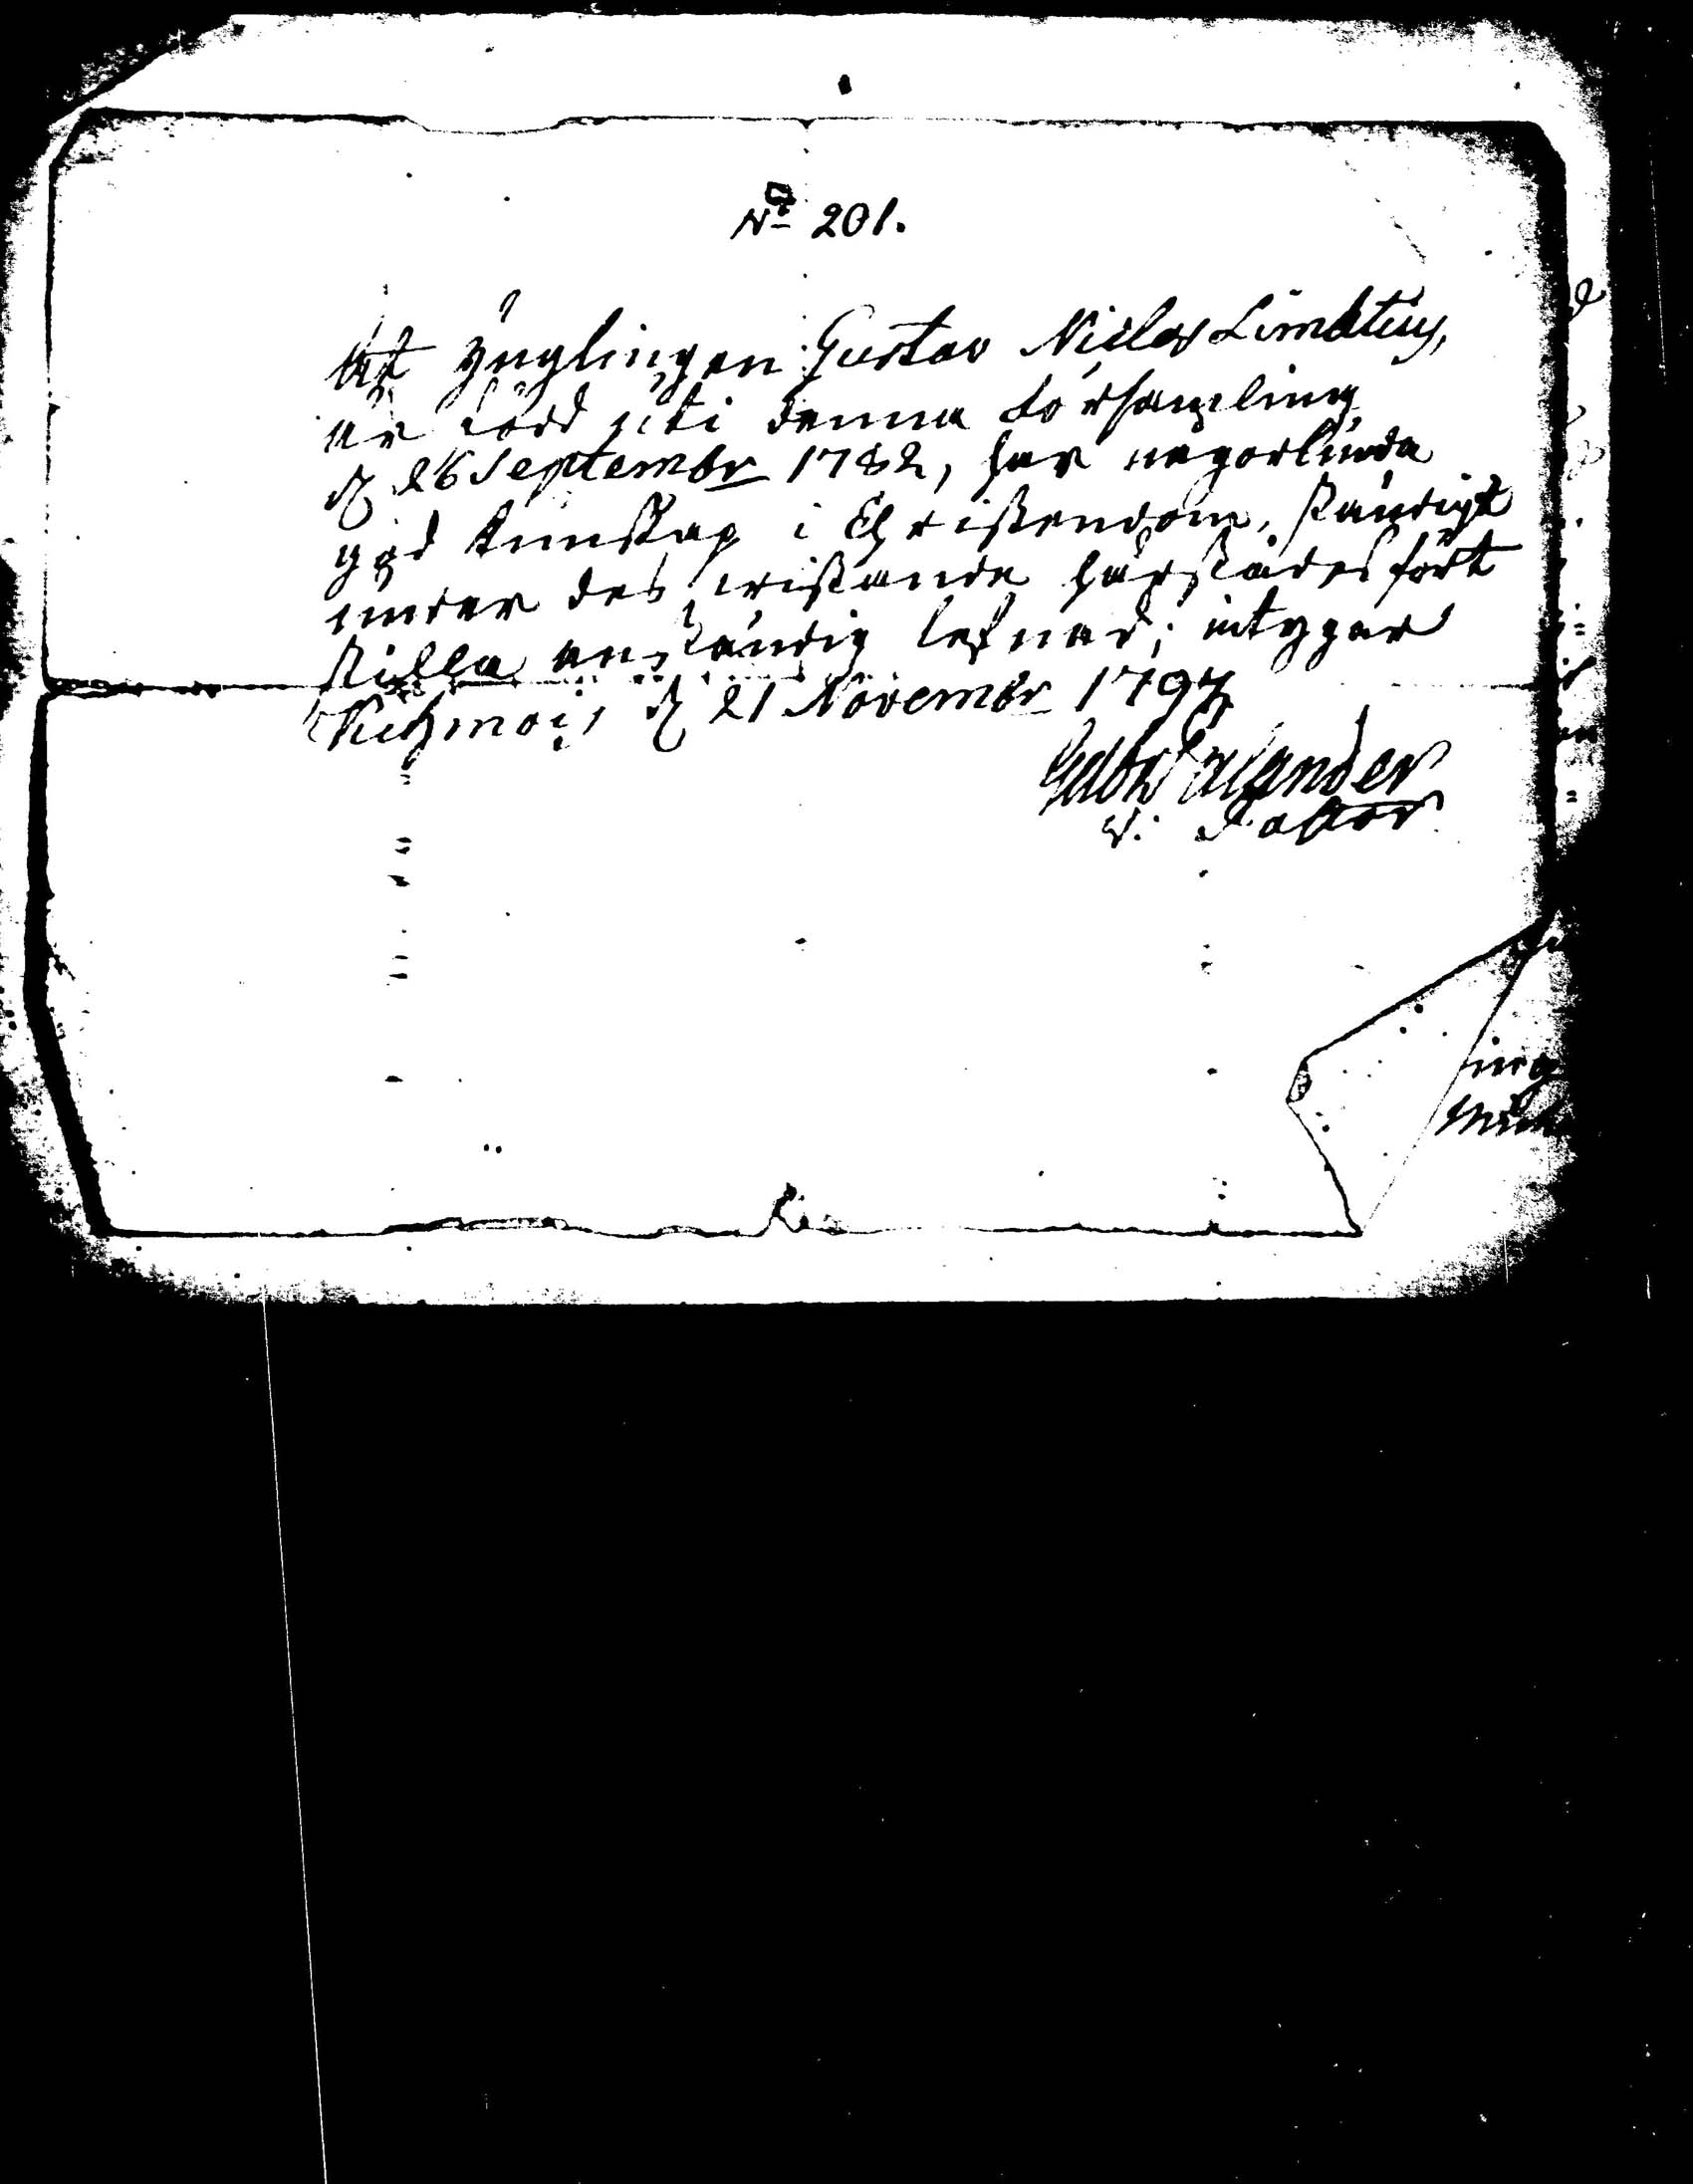 No 201.
At Ynglingen Gustav Niclas Limatius,
är född uti denna Församling
d 26 Septembr 1782, har någorlunda
god kunskap i Christendom, ständigt
under des vistande härstädes fört
stilla anständig lefnad; intygar
d 21 Novembr 1797
Erlander
v. Pastor